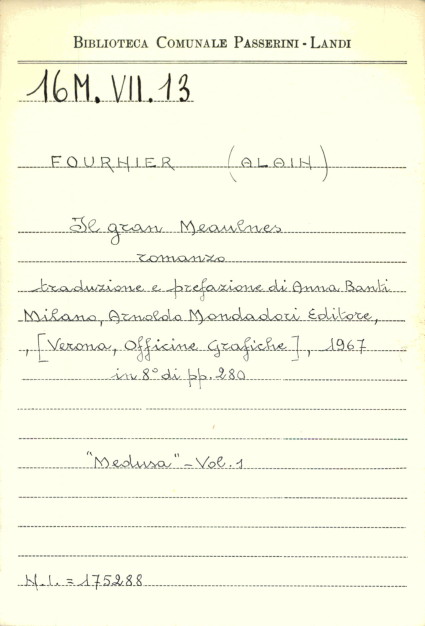 BIBLIOTECA COMUNALE PASSERINI - LANDI
16M. VII. 13
FOURNIER (ALAIN)
Il gran Meaulnes
romanzo
traduzione e prefazione di Anna Banti
Milano, Arnoldo Mondadori Editore,
, [Verona, Officine Grafiche], 1967
in 8° di pp. 280
"Medusa" - Vol. 1
N.I. = 175288